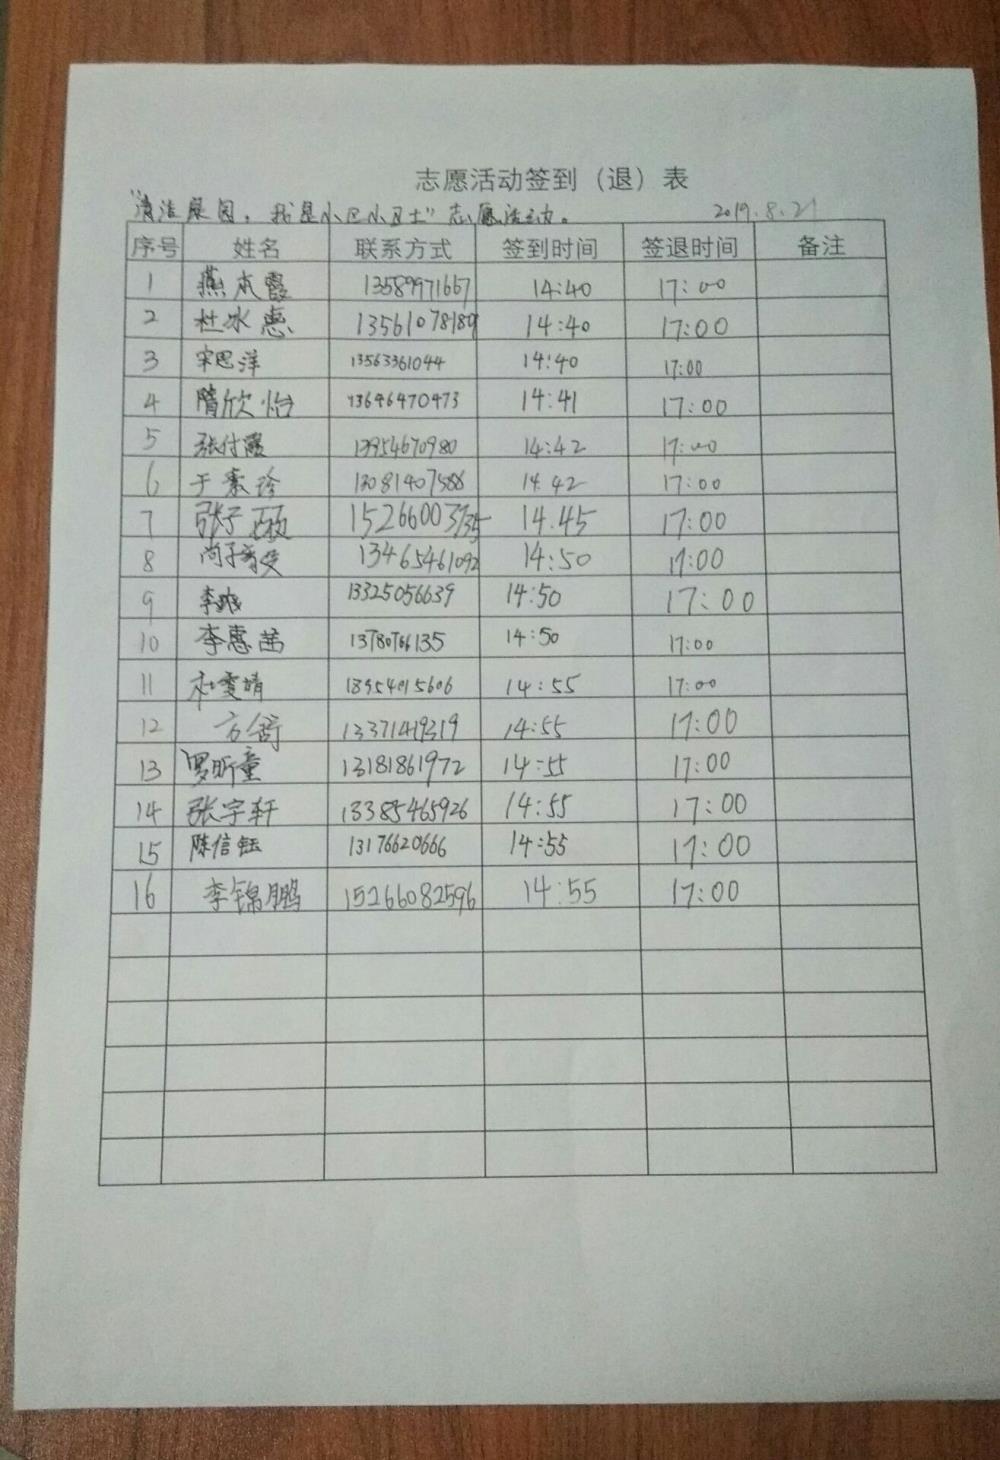 志愿活动签到（退）表
"清洁家园，我是小区小卫士"志愿活动。 2019.8.21
序号 姓名 联系方式 签到时间 签退时间 备注
1 燕本霞 13589971667 14:40 17:00
2 杜冰惠 13561078189 14:40 17:00
3 宋思洋 13563361044 14:40 17:00
4 隋欣怡 13646470473 14:41 17:00
5 张付霞 13954670980 14:42 17:00
6 于素珍 13081407588 14:42 17:00
7 张子硕 15266003735 14:45 17:00
8 尚子 13465461092 14:50 17:00
9 李 13325056639 14:50 17:00
10 李惠茜 13780766135 14:50 17:00
11 杜雯婧 18954015606 14:55 17:00
12 方舒 13371419319 14:55 17:00
13 罗昕童 13181861972 14:55 17:00
14 张宇轩 13385465926 14:55 17:00
15 陈信钰 13176620666 14:55 17:00
16 李锦鹏 15266082596 14:55 17:00